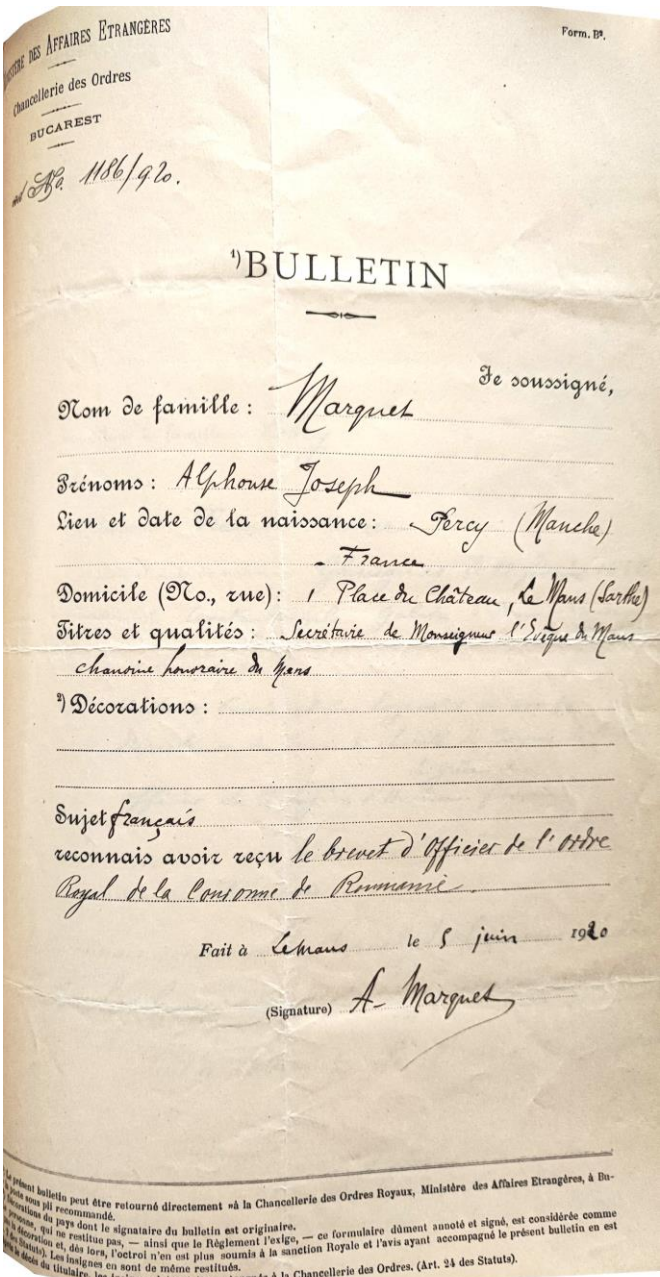 MINISTÈRE DES AFFAIRES ETRANGÈRES
Form. B⁹.
Chancellerie des Ordres
BUCAREST
ad No. 1186/920.
¹) BULLETIN
Je soussigné,
Nom de famille : Marquet
Prénoms : Alphonse Joseph
Lieu et date de la naissance : Percy (Manche)
- France
Domicile (No., rue) : 1 Place du Château, Le Mans (Sarthe)
Titres et qualités : Secrétaire de Monseigneur l'Evêque du Mans
chanoine honoraire du Mans
²) Décorations :
Sujet français
reconnais avoir reçu le brevet d'Officier de l'ordre
Royal de la Couronne de Roumanie.
Fait à Le Mans le 5 juin 1920
(Signature) A- Marquet
présent bulletin peut être retourné directement «à la Chancellerie des Ordres Royaux, Ministère des Affaires Etrangères, à Bu-
sous pli recommandé.
du pays dont le signataire du bulletin est originaire.
qui ne restitue pas, — ainsi que le Règlement l'exige, — ce formulaire dûment annoté et signé, est considérée comme
décoration et, dès lors, l'octroi n'en est plus soumis à la sanction Royale et l'avis ayant accompagné le présent bulletin en est
Les insignes en sont de même restitués.
décès du titulaire, les à la Chancellerie des Ordres. (Art. 24 des Statuts).